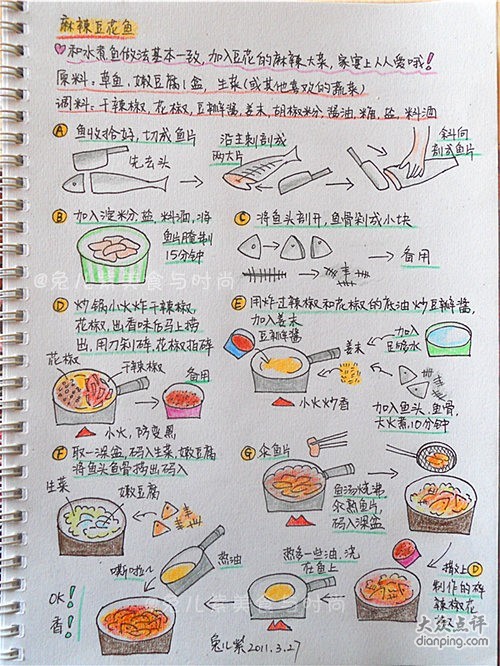 麻辣豆花鱼
和水煮鱼做法基本一致,加入豆花的麻辣大菜,家宴上人人爱哦!
原料:草鱼,嫩豆腐1盒,生菜(或其他喜欢的蔬菜)
调料:干辣椒,花椒,豆瓣酱,姜末,胡椒粉,酱油,糖,盐,料酒
A 鱼收拾好,切成鱼片
先去头
沿主刺剖成
两大片
斜向
剖成鱼片
B 加入淀粉,盐,料酒,将
鱼片腌制
15分钟
C 将鱼头剖开,鱼骨剁成小块
备用
@兔儿紫美食与时尚
D 炒锅小火炸干辣椒,
花椒,出香味后马上捞
出,用刀剁碎,花椒拍碎
花椒
干辣椒
备用
小火,防变黑
E 用炸过辣椒和花椒的底油炒豆瓣酱,
加入姜末
豆瓣酱
姜末
小火炒香
加入
足够水
加入鱼头,鱼骨,
大火煮,10分钟
F 取一深盆,码入生菜,嫩豆腐
将鱼头鱼骨捞出码入
生菜
嫩豆腐
G 汆鱼片
鱼汤烧沸
汆熟鱼片,
码入深盆
撒上D
制作的碎
辣椒花
热多一些油,浇
在鱼上
热油
嘶啦~
OK!
香!
兔儿紫 2011.3.27
大众点评
dianping.com